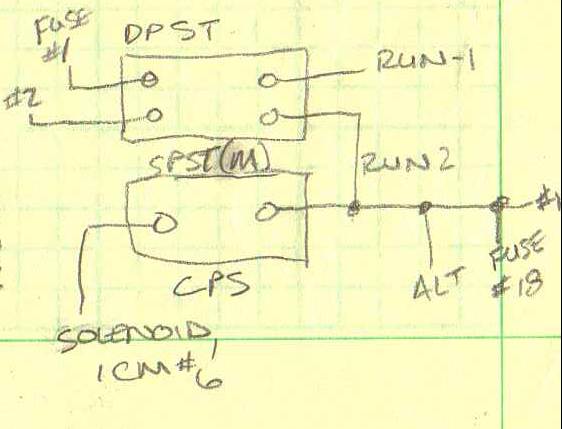 FUSE
#1
DPST
RUN-1
#2
SPST(M)
RUN2
CPS
ALT
FUSE
#18
SOLENOID,
ICM#6